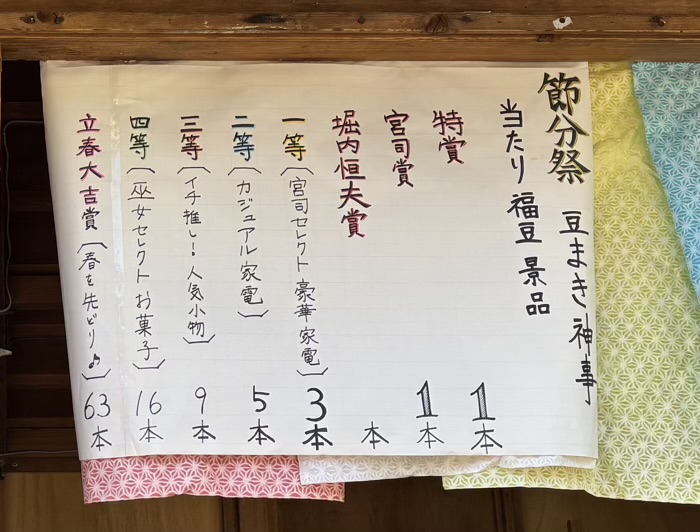 節分祭 豆まき神事
当たり福豆 景品
特賞 1本
宮司賞 1本
堀内恒夫賞 本
一等(宮司セレクト豪華家電) 3本
二等(カジュアル家電) 5本
三等(イチ推し!人気小物) 9本
四等(巫女セレクトお菓子) 16本
立春大吉賞(春を先どり♪) 63本